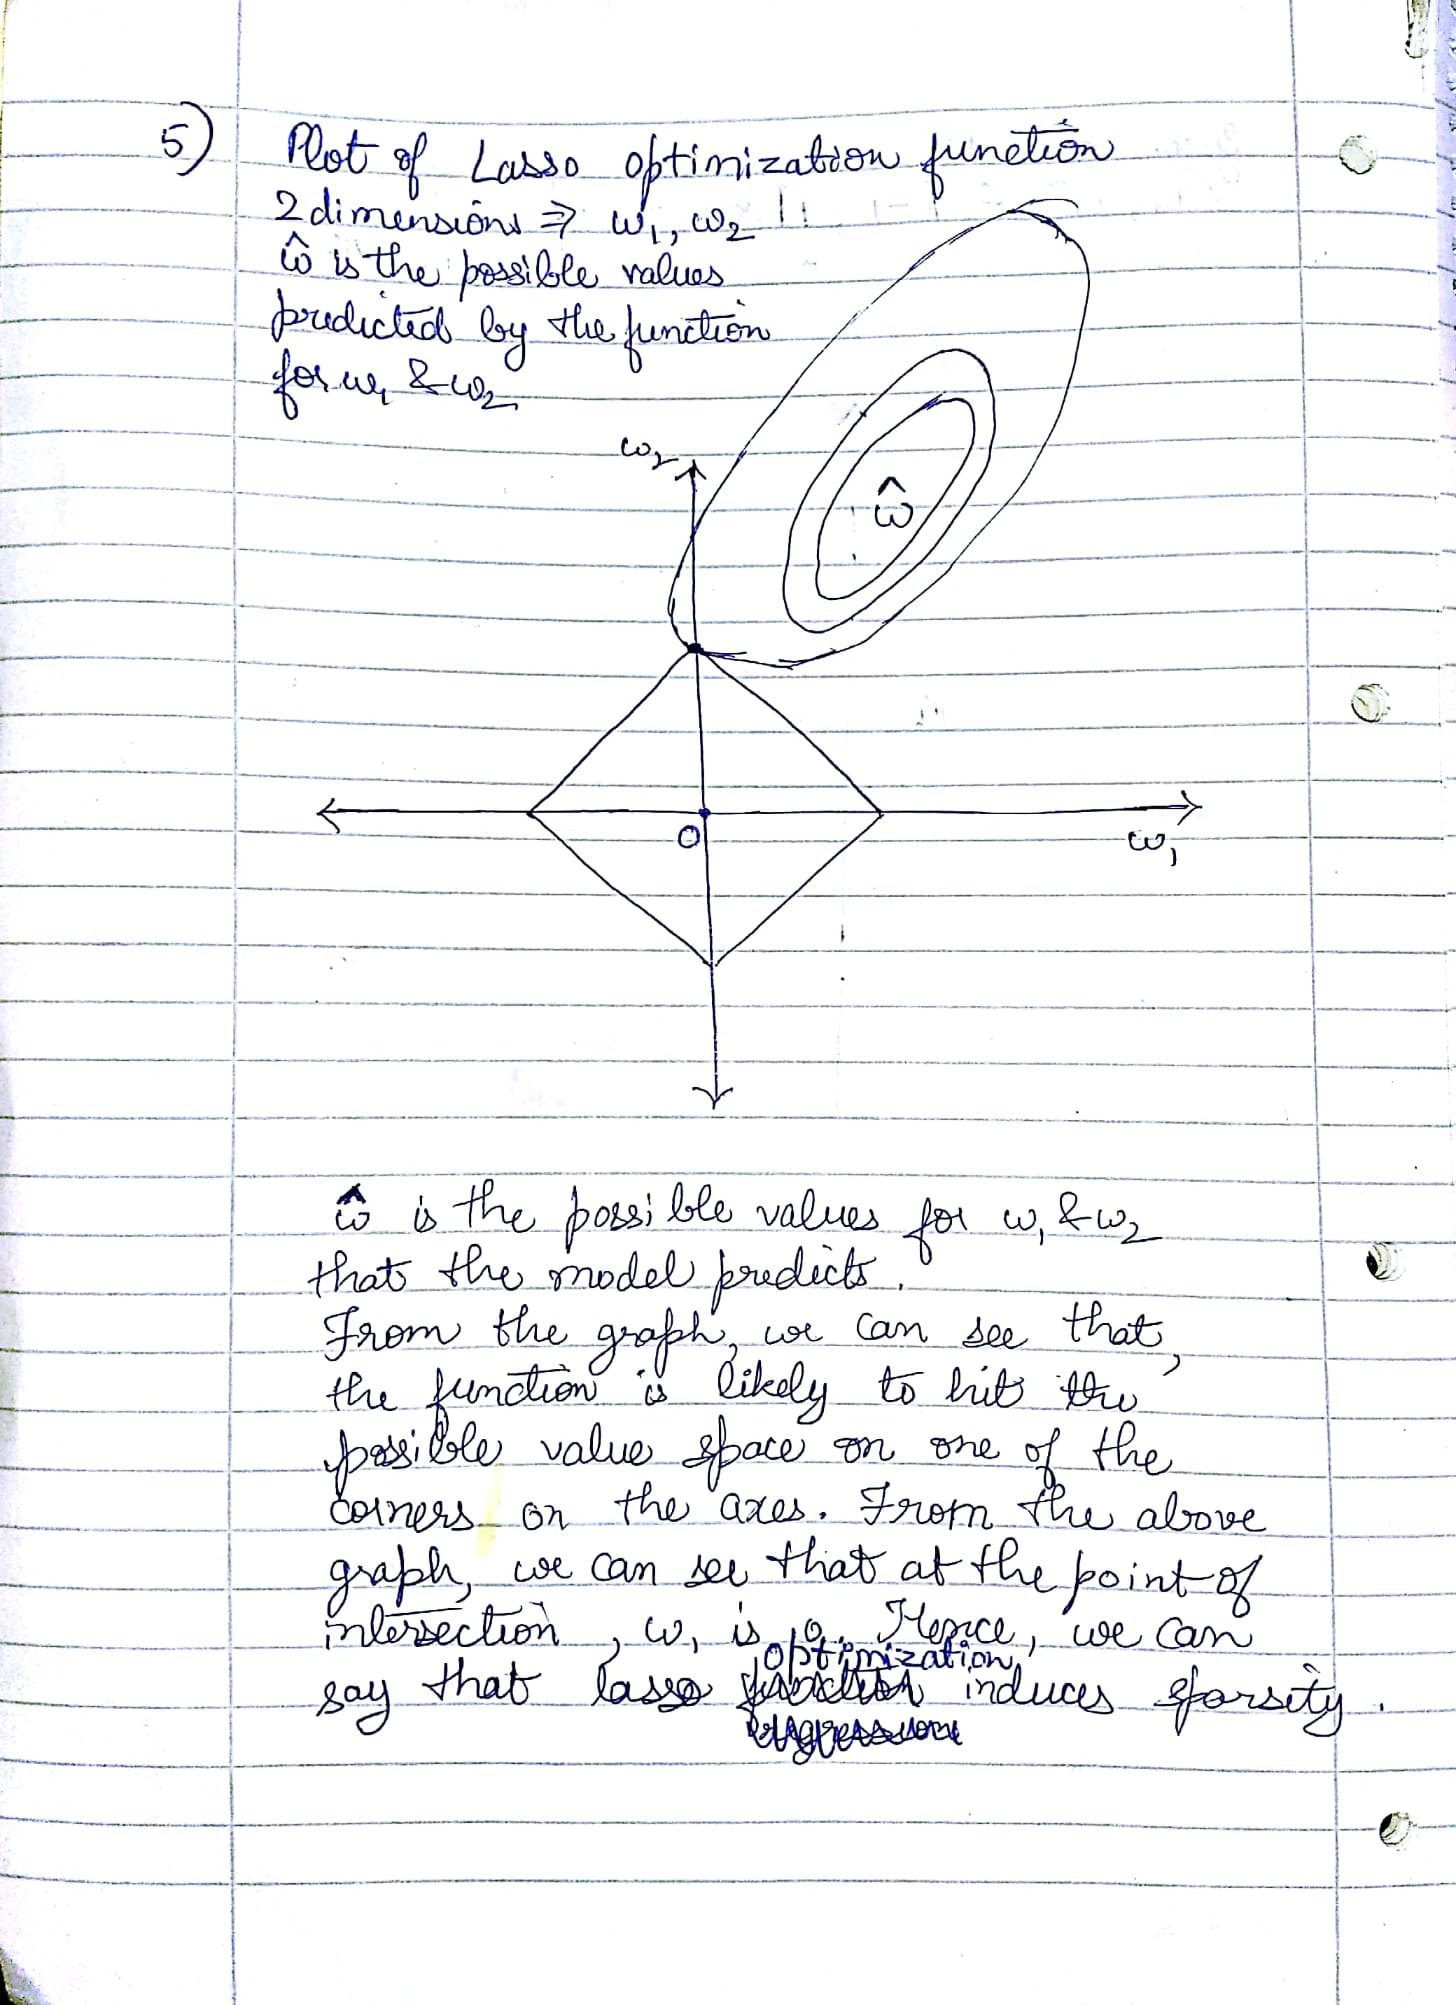 5) Plot of Lasso optimization function
2 dimensions ⇒ ω₁, ω₂
ω̂ is the possible values
predicted by the function
for ω₁ & ω₂
ω₂
ω̂
O
ω₁
ω̂ is the possible values for ω₁ & ω₂
that the model predicts.
From the graph, we can see that,
the function is likely to hit the
possible value space on one of the
corners on the axes. From the above
graph, we can see that at the point of
intersection, ω₁ is 0. Hence, we can
optimization
say that lasso function induces sparsity.
regression